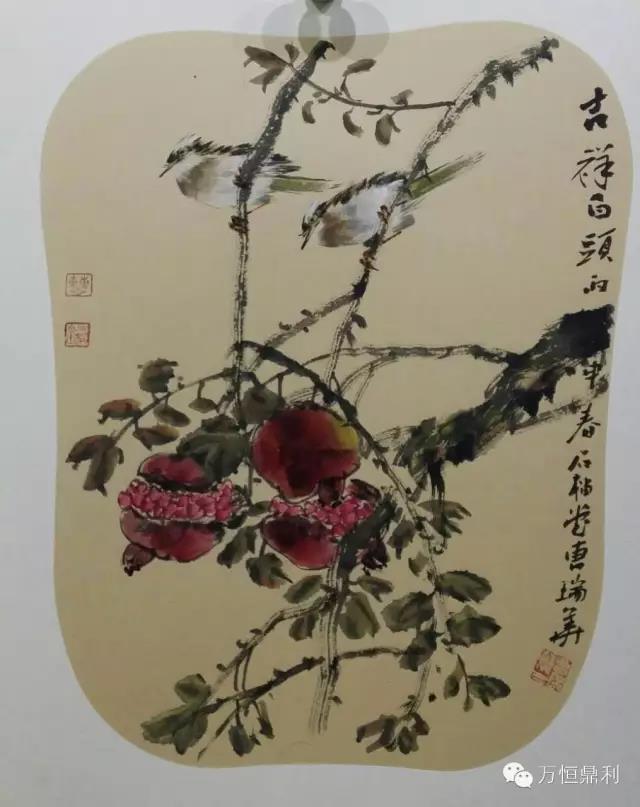 吉祥白頭丙申春石榴堂曹瑞華
万恒鼎利